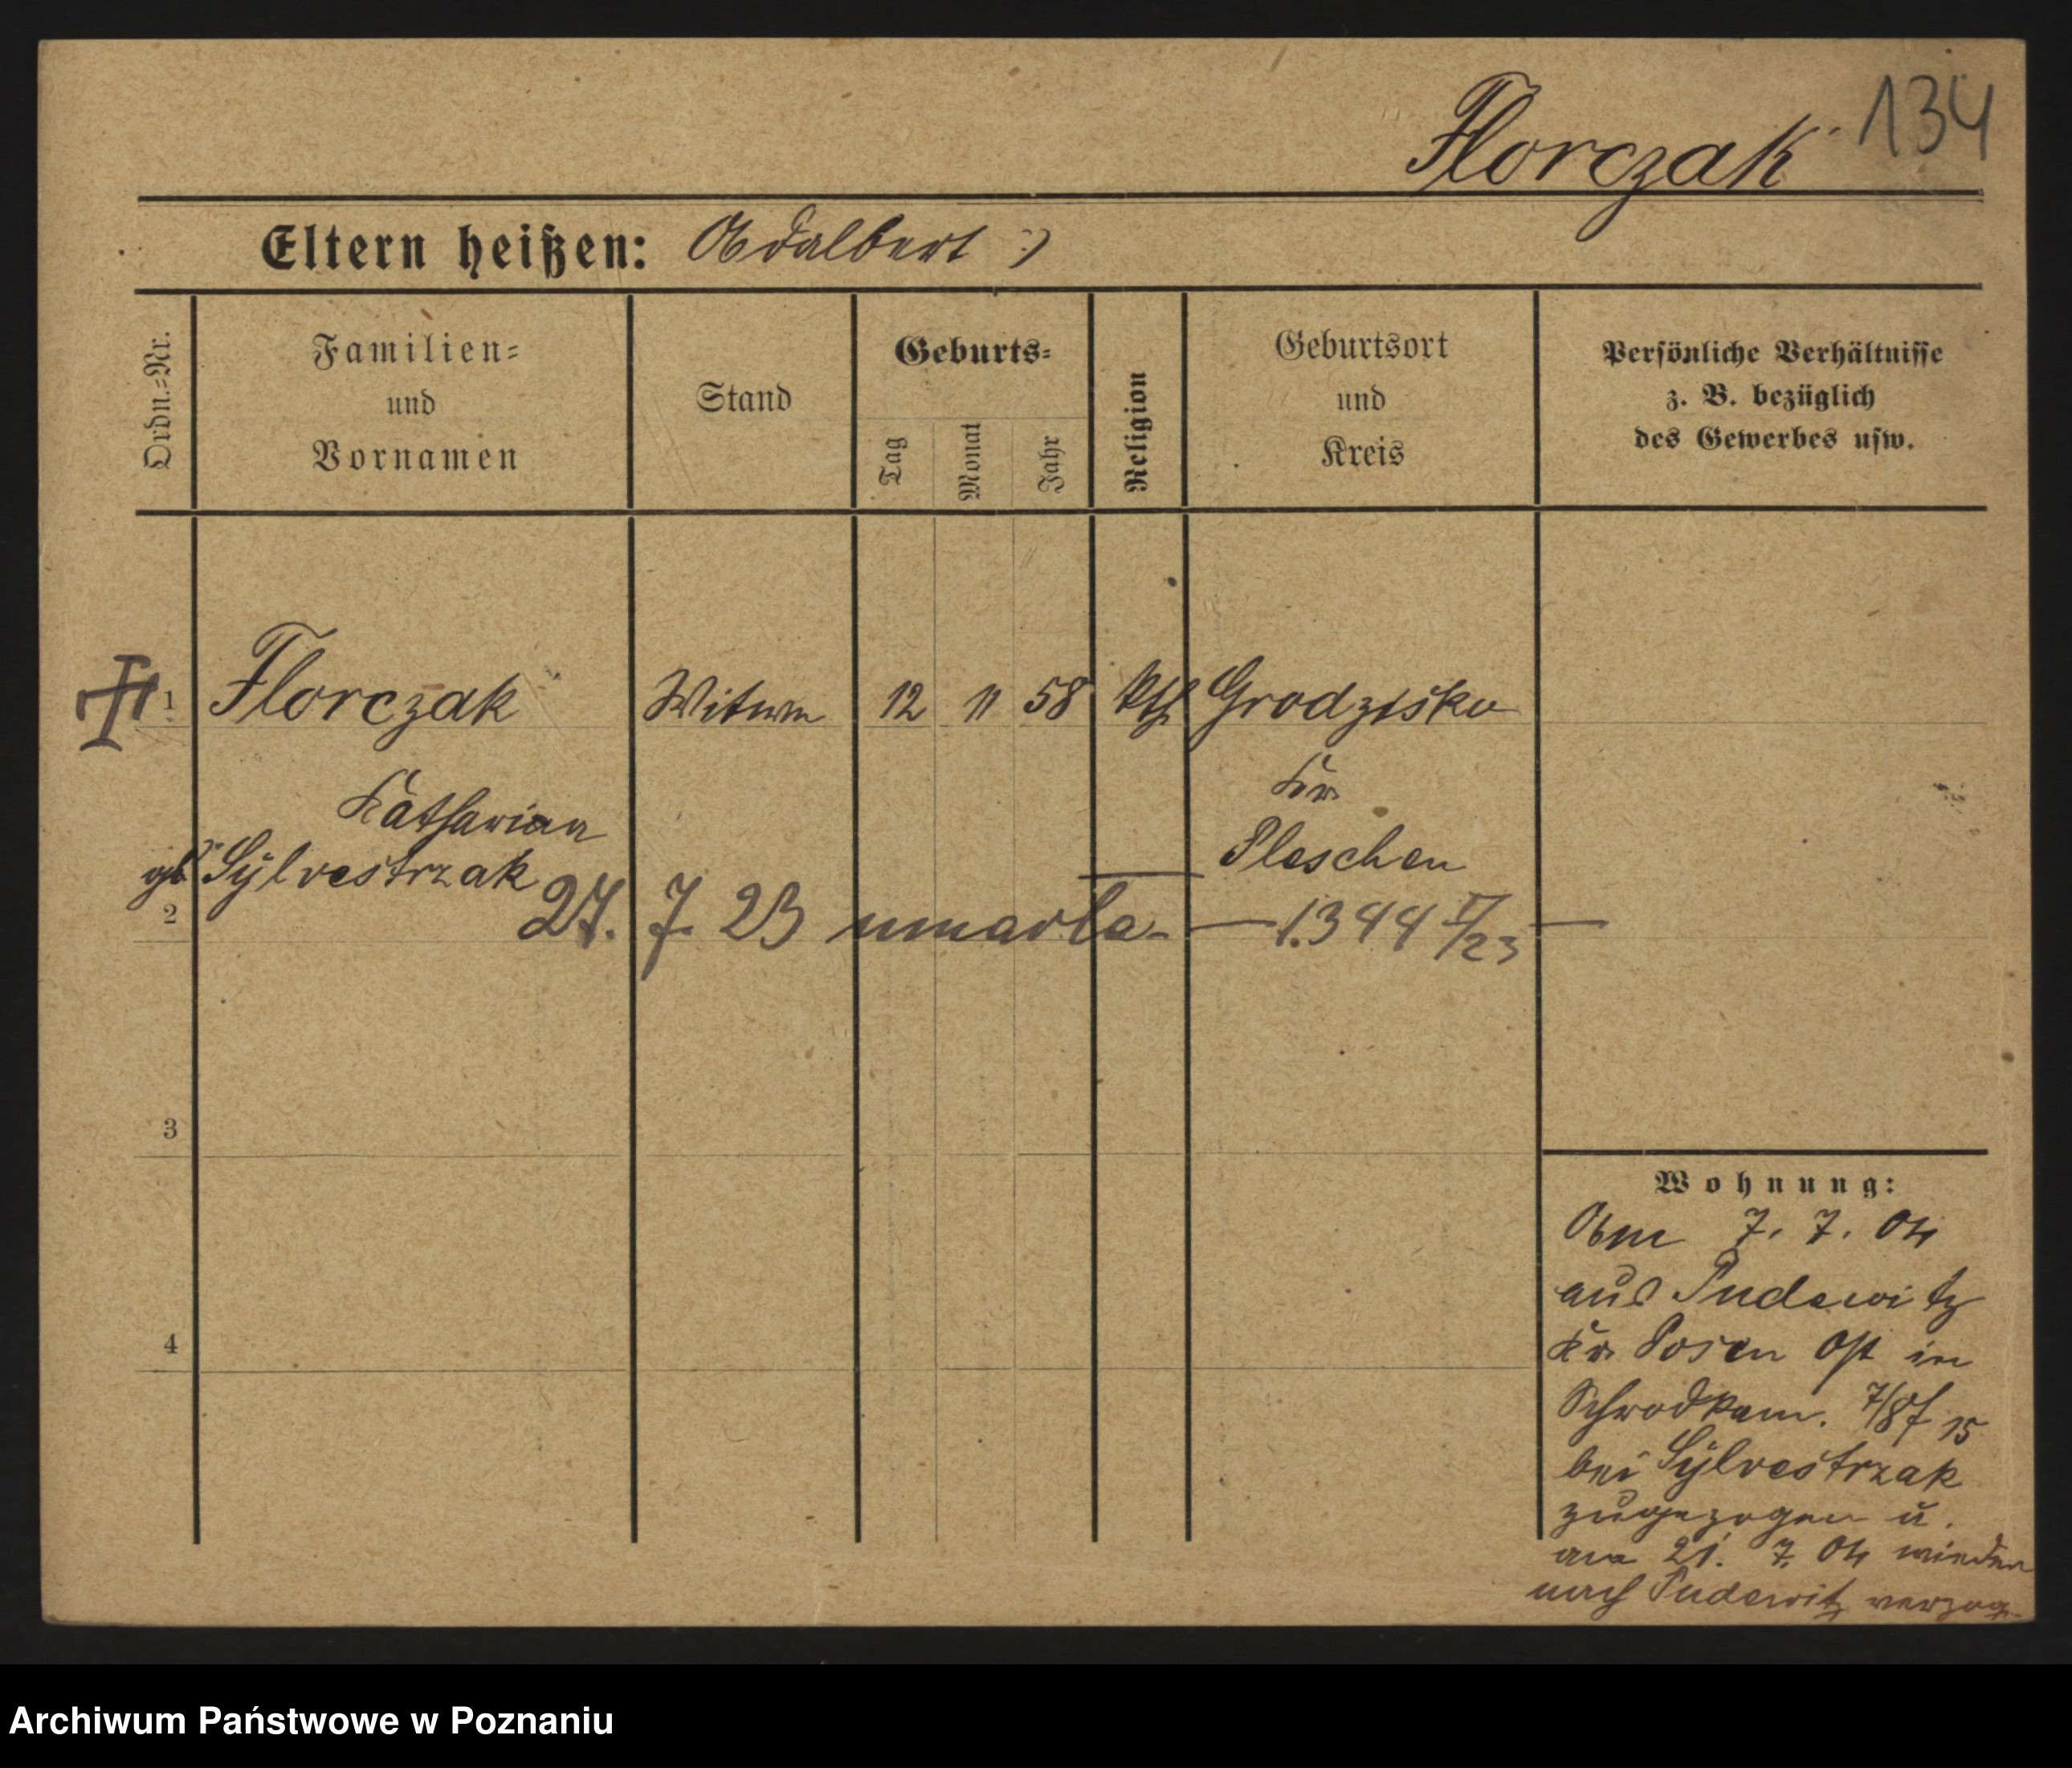 134
Florczak
Eltern heißen: Adalbert :)
Ordn.-Nr.
Familien-
und
Vornamen
Stand
Geburts-
Tag
Monat
Jahr
Religion
Geburtsort
und
Kreis
Persönliche Verhältnisse
z. B. bezüglich
des Gewerbes usw.
1 Florczak Witwe 12 11 58 kth Grodzisko
Katharina Kr
gb Sylvestrzak Pleschen
2
27. 7. 23 umarła - 1344 /23
3
4
Wohnung:
Am 7. 7. 04
aus Pudewitz
Kr Posen Ost in
7/8 15
bei Sylvestrzak
zugezogen u.
am 21. 7. 04 wieder
nach Pudewitz verzog.
Archiwum Państwowe w Poznaniu